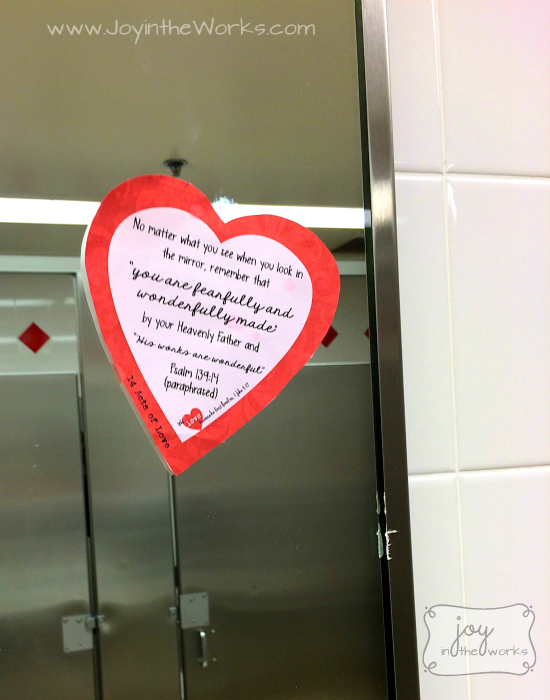 www.JoyintheWorks.com
No matter what you see when you look in
the mirror, remember that
"you are fearfully and
wonderfully made"
by your Heavenly Father and
"His works are wonderful"
Psalm 139:14
(paraphrated)
We
LOVE
because he first loved us
14 Acts of Love
joy
in the works